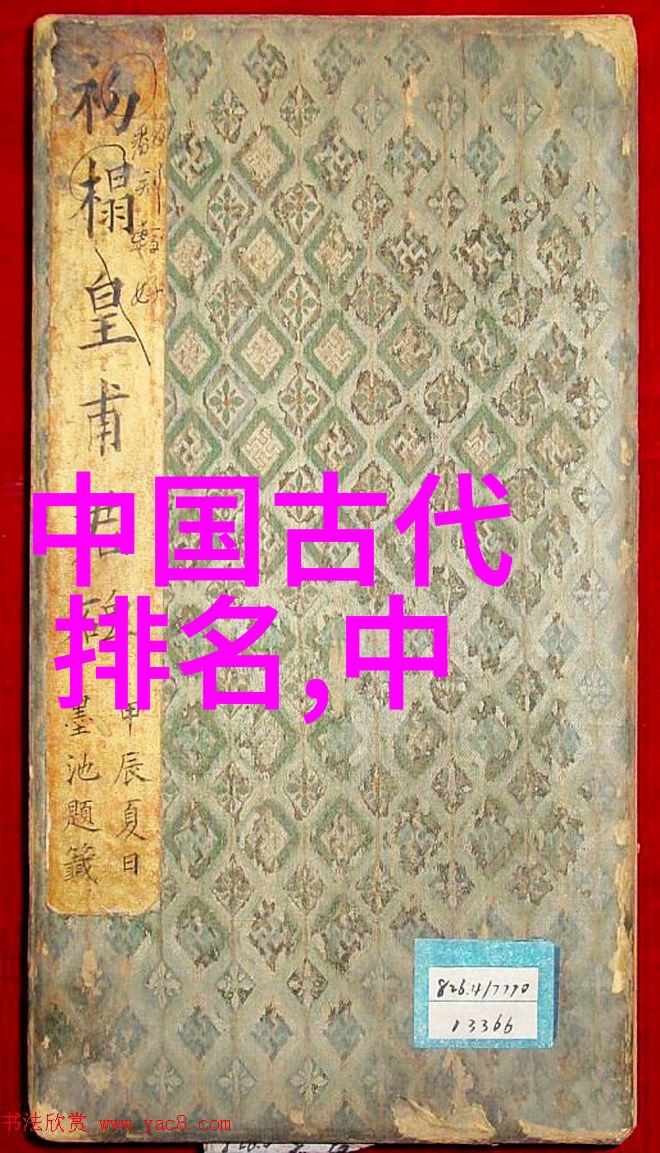 初榻皇甫君碑
甲辰夏日
墨池題籤
中国古代
排名,中
826.4/7770
13366
书法欣赏 www.yac8.com